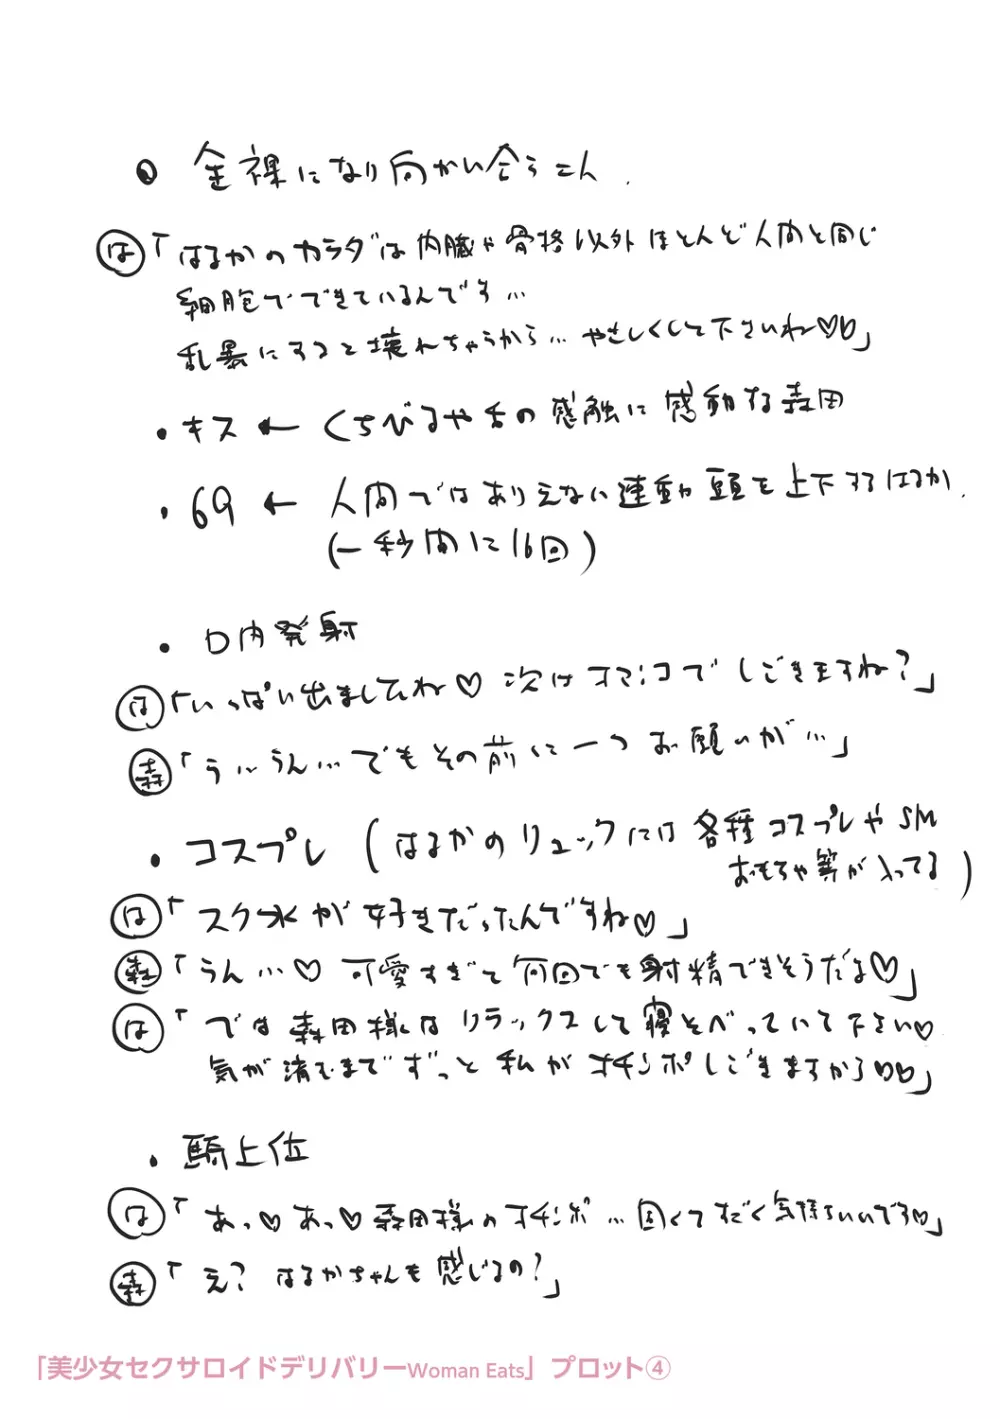 ● 全裸になり向かい合う二人
は「はるかのカラダは内臓や骨格以外ほとんど人間と同じ
細胞でできているんです…
乱暴にすると壊れちゃうから…やさしくして下さいね♡♡」
・キス ← くちびるや舌の感触に感動する森田
・69 ← 人間ではありえない連動 頭を上下するはるか
(一秒間に16回)
・口内発射
は「いっぱい出ましたね♡ 次はオマンコでしごきますね?」
森「う…うん…でもその前に一つお願いが…」
・コスプレ (はるかのリュックには各種コスプレやSM
おもちゃ等が入ってる)
は「スク水が好きだったんですね♡」
森「うん…♡ 可愛すぎて何回でも射精できそうだよ♡」
は「では森田様はリラックスして寝そべっていて下さい♡
気が済むまでずっと私がオチンポしごきますから♡♡」
・騎上位
は「あっ♡あっ♡森田様のオチンポ…固くてすごく気持ちいいです♡」
森「え? はるかちゃんも感じるの?」
「美少女セクサロイドデリバリーWoman Eats」プロット④